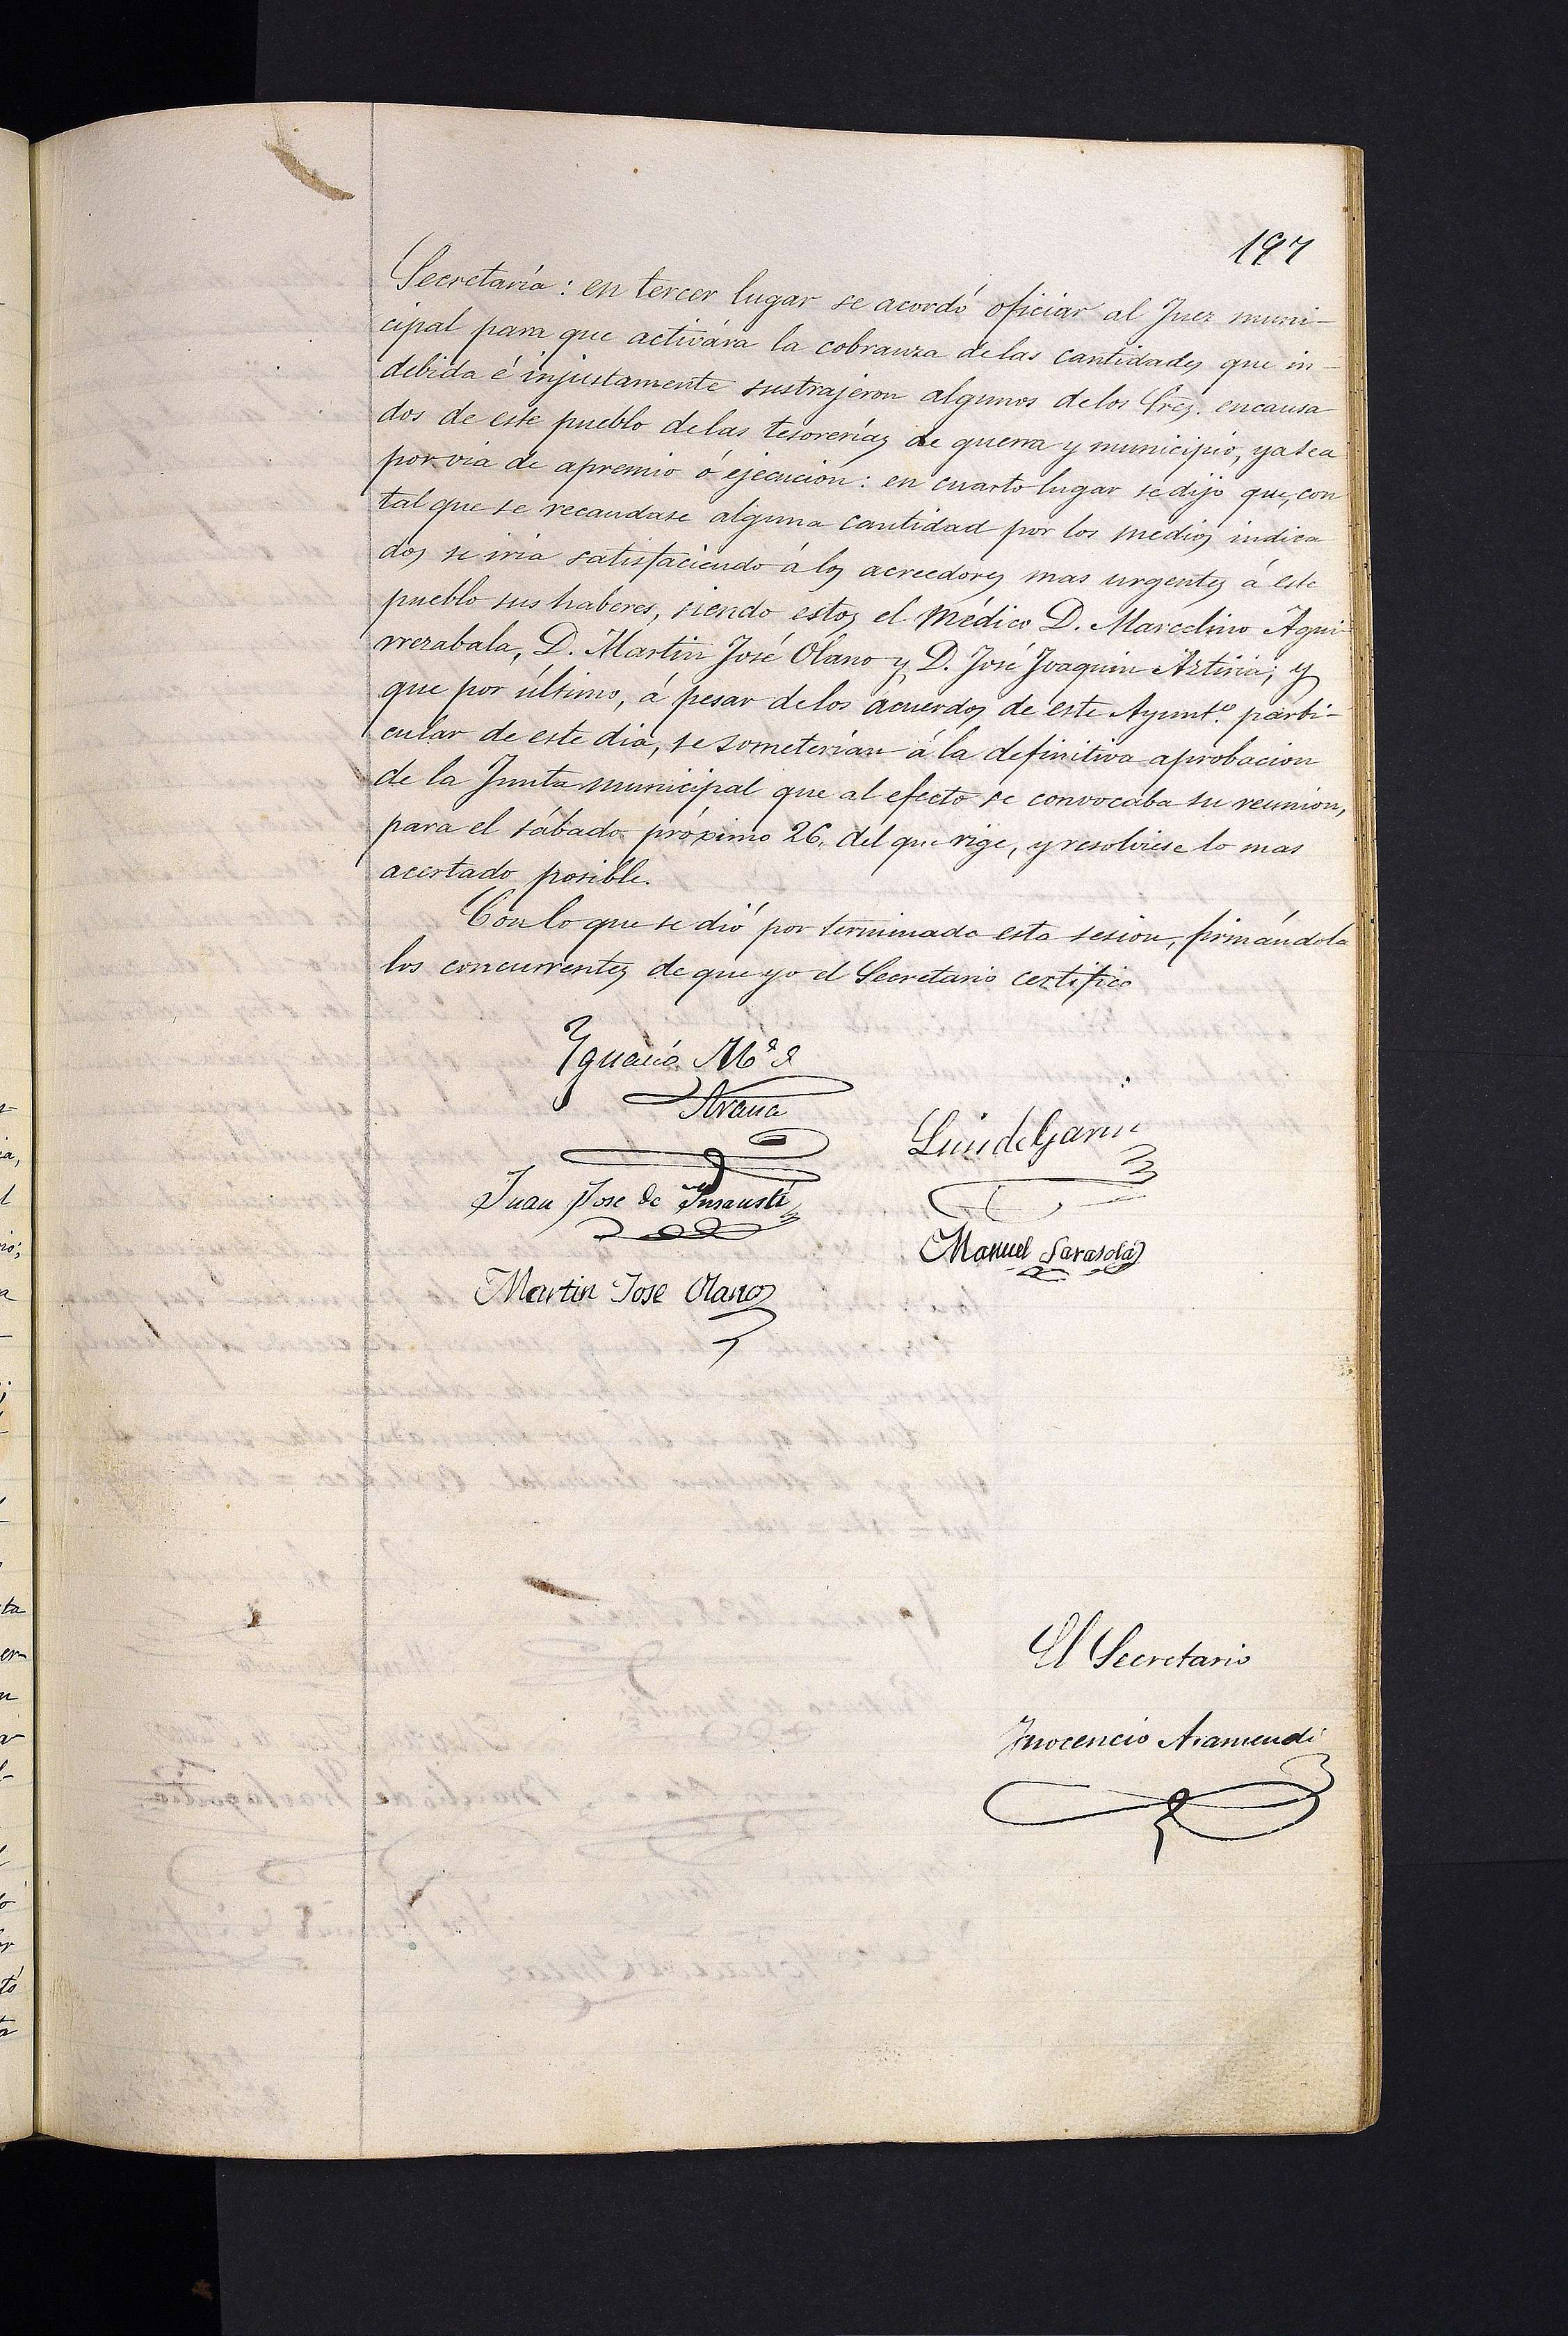 197
Secretaría: en tercer lugar se acordó oficiar al Juez muni-
cipal para que activára la cobranza de las cantidades que in-
debida é injustamente sustrajeron algunos de los Sres. encausa
dos de este pueblo de las tesorerías de guerra y municipio, ya sea
por via de apremio ó ejecucion: en cuarto lugar se dijo que, con
tal que se recaudase alguna cantidad por los medios indica
dos se iria satisfaciendo á los acreedores mas urgentes á este
pueblo sus haberes, siendo estos el Médico D. Marcelino Agui-
rrezabala, D. Martin José Olano y D. José Joaquin Aztiria; y
que por último, á pesar de los acuerdos de este Ayunt.º parti-
cular de este dia, se someterian á la definitiva aprobacion
de la Junta municipal que al efecto se convocaba su reunion,
para el sábado próximo 26, del que rige, y resolviese lo mas
acertado posible.
Con lo que se dió por terminada esta sesion, firmándola
los concurrentes de que yo el Secretario certifico
Ygnacio M.ª d
Arana
Luis de Garin
Juan Jose de Insausti
Manuel Sarasola
Martin Jose Olano
El Secretario
Inocencio Aramendi